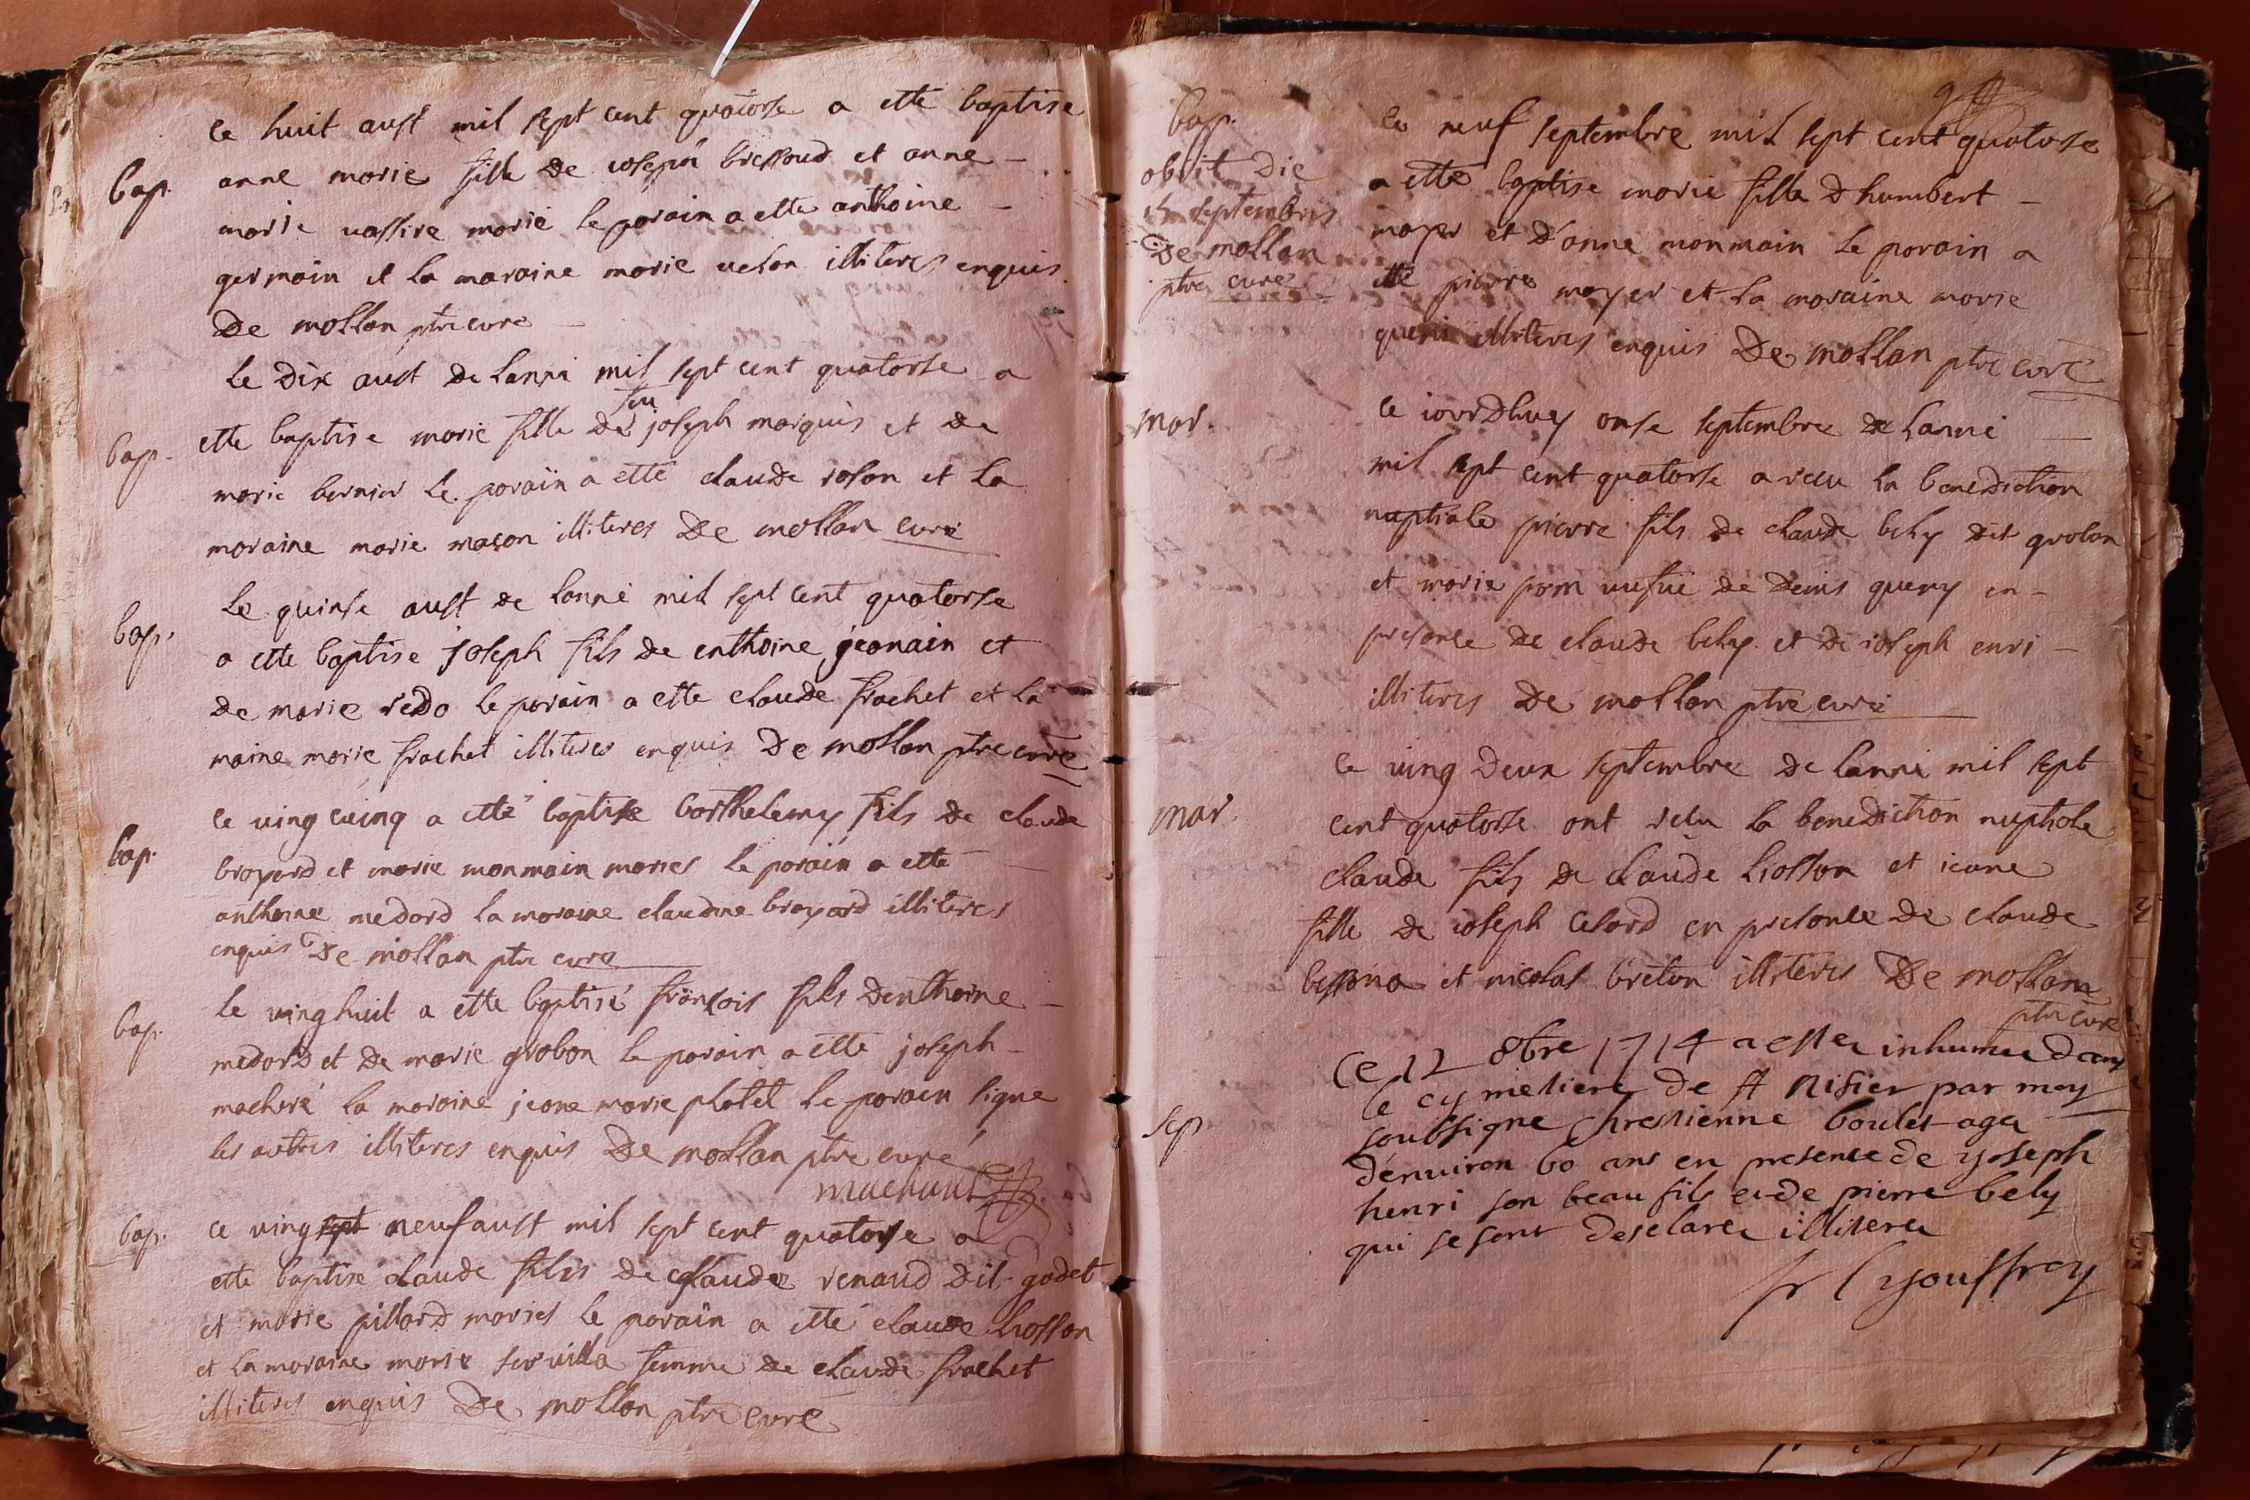 ce huit aust mil sept cent quatorse a etté baptise
bap.
anne marie fille de ioseph bressoud et anne
marie vassire marié le parain a ette anthoine
germain et la maraine marie velon illiteres enquis
De mollan ptre curé
le dix aust de lanné mil sept cent quatorse a
bap.
ette baptise marie fille de feu joseph marquis et de
marie bernier le parain a ette claude roson et la
maraine marie mason illiteres De mollan curé
le quinse aust de lanné mil sept cent quatorse
bap.
a ette baptise joseph fils de enthoine jeanain et
de marie redo le parain a ette claude frachet et la
maine marie frachet illiteres enquis De mollan ptre curé
ce ving cuinq a etté baptise barthelemy fils de claude
bap.
brayard et marie monmain mariés le parain a ette
anthoine medard la maraine claudine brayard illiteres
enquis De mollan ptre curé
le ving huit a ette baptisé fransois fils denthoine
bap.
medard et de marie grobon le parain a ette joseph
macheré la maraine jeane marie platel le parain signe
les autres illiteres enquis De mollan ptre curé
ce ving sept neuf aust mil sept cent quatorse a
bap.
ette baptisé claude fils de claude renaud dit godet
et marie pillard mariés le parain a etté claude liosson
et la maraine marie servilla femme de claude frachet
illiteres enquis De mollan ptre curé
bap.
obiit die
septembris
De mollan
ptre curé
ce neuf septembre mil sept cent quatorse
a etté baptise marie fille dhumbert
mayer et d'anne monmain le parain a
etté pierre mayer et la maraine marie
queni illiteres enquis De mollan ptre curé
mar.
ce iourdhuy onse septembre de lanné
mil sept cent quatorse a resu la benediction
nuptiale pierre fils de claude bely dit grobon
et marie pom vefue de denis queny en
presance de claude bely et de ioseph enri
illiteres De mollan ptre curé
mar.
ce ving deux septembre de lanné mil sept
cent quatorse ont resu la benediction nuptiale
claude fils de claude liosson et ieane
fille de ioseph celard en presance de claude
bessona et nicolas breton illiteres De mollan
ptre curé
sep
Ce 12 8bre 1714 a estez inhumee dans
le cymetiere de st nisier par moy
soubsigne chrestienne boulet agee
denuiron 60 ans en presence de yoseph
henri son beau fils et de pierre bely
qui se sont desclarez illiterez